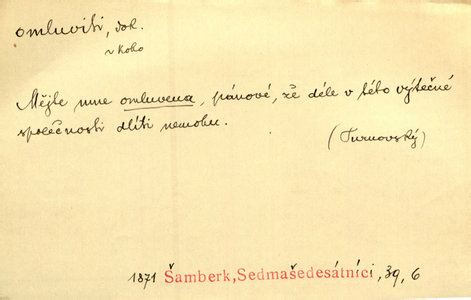 omluviti, dok.
~ koho
Mějte mne omluvena, pánové, že déle v této výtečné
společnosti dlíti nemohu.
(Turnovský)
1871 Šamberk, Sedmašedesátníci, 39, 6